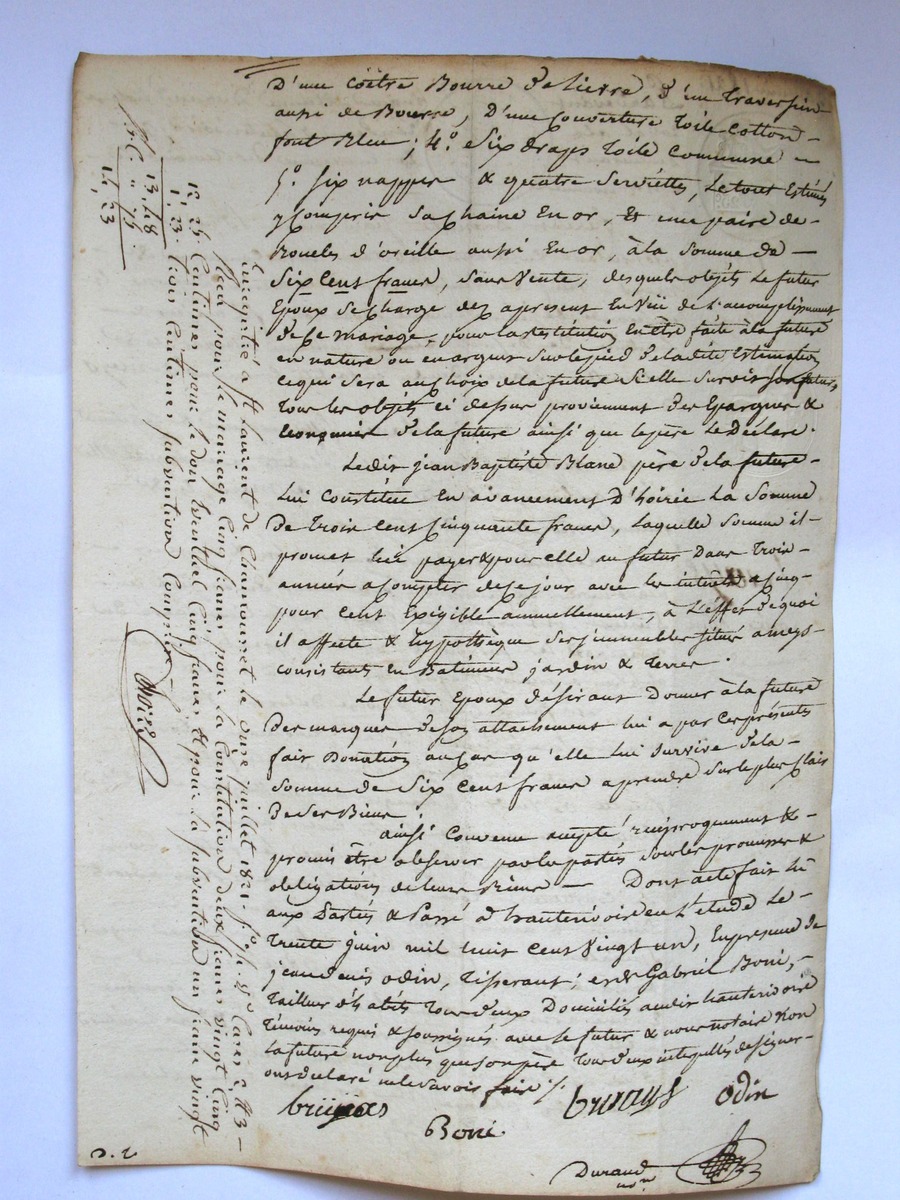 D'une Coëtre Bourre de Lierre, d'un Traversin
aussi de Bourre, D'une Couverture Toile Cotton
font Bleu; 4.° Six draps Toile Commune
5.° Six nappes & quatre Serviettes, Le tout Estimés
y Compris Sa Chaine En or, Et une paire de
Boucles d'oreille aussi En or, à la Somme de
Six Cent francs, Sans Vente; desquels objets Le futur
Epoux Se Charge dez apresent En Vüe de L'accomplissement
de Ce mariage, pour la restitution En être faite à la future
en nature ou en argent Sur le pied de la dite Estimation
ce qui Sera au Choix de la future Si elle Survit Son futur,
Tous les objets ci dessus proviennent des Epargnes &
Economies de la future ainsi que le père Le Déclare.
Ledit jean Baptiste Blanc père de la future
Lui Constitue En avancement D'hoirie La Somme
De Trois Cent Cinquante francs, Laquelle Somme il
promet lui payer & pour elle au futur Dans Trois
années a Compter de Ce jour avec les intérêts a Cinq
pour Cent Exigible annuellement, à L'effet de quoi
il affecte & hypothèque Ses immeubles Situé a meys
Consistants En Batiments jardin & Terres.
Le futur Epoux désirant Donner à la future
Des marques de Son attachement lui a par Ces présents
fait Donation au Cas qu'elle Lui Survive de la
Somme de Six Cent francs a prendre Sur le plus Clair
De Ses Biens.
ainsi Convenu accepté réciproquement &
promis être observer par les partés Sous les promesses &
obligations de leurs Biens — Dont acte fait Lû
aux Partés & Passé à hauterivoire en L'étude Le
Trente juin mil huit Cent Vingt un, En présence de
jean denis odin, Tisserant; et de Gabriel Boni,
Tailleur d'habits Tous deux Domiciliés audit hauterivoire
Témoins requis & Soussignés avec le futur & nous notaire Non
La future non plus que Son père Tous deux interpellés de Signer
ont déclaré ne le Savoir faire ./.
bruyas odin
Boni
Durand
nore
Enregistré à St Laurent de Chamousset le onze juillet 1821. f.° 51. V.° Cases 2 & 3
Reçu pour le mariage Cinq francs, pour la Constitution deux francs vingt Cinq
Centimes pour le don mutuel Cinq francs, & pour la Subvention un franc vingt
trois Centimes Subvention Comprise
12, 25
1, 23
13, 48
" 75
14, 23